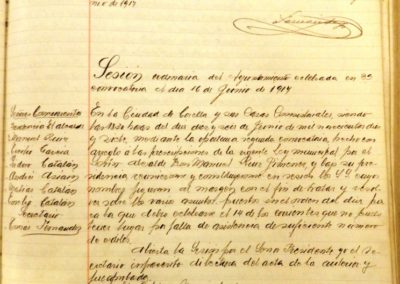 nio de 1917
Fernandez
Sesión ordinaria del Ayuntamiento celebrada en 2ª
convocatoria el dia 16 de Junio de 1917
Señores Concurrentes
Manuel Ruiz
Emilio Garcia
Pedro Catalán
Andrés
Matias Catalán
Emilio Catalán
Secretario
Tomas Fernandez
En la Ciudad de Corella y sus Casas Consistoriales, siendo
las horas del dia diez y seis de Junio de mil novecientos diez
y siete, mediante la oportuna segunda convocatoria, hecha con
arreglo a las prescripciones de la vigente Ley municipal por el
Señor Alcalde Don Manuel Ruiz Jimenez, y bajo su pre
sidencia, concurrieron y constituyeron en sesión los Sres cuyos
nombres figuran al margen con el fin de tratar y resol
ver sobre los varios asuntos puestos en el orden del dia pa
ra la que debio celebrarse el 14 de los corrientes que no pudo
tener lugar por falta de asistencia de suficiente numero
de ediles.
Abierta la Sesión por el Señor Presidente yo el Se
cretario infrascrito di lectura del acta de la anterior y
fue aprobada.